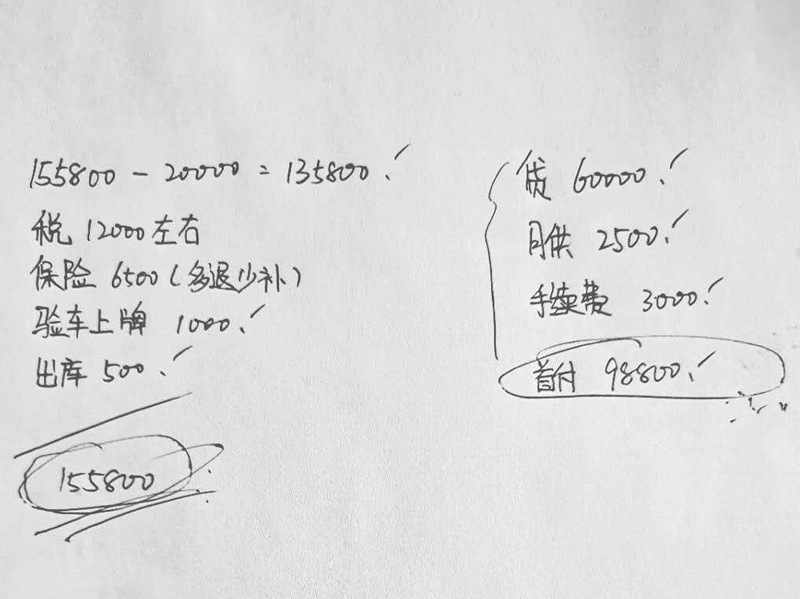 155800 - 20000 = 135800.✓
税 12000左右
保险 6500(多退少补)
验车上牌 1000.✓
出库 500.✓
155800
贷 60000.✓
月供 2500.✓
手续费 3000.✓
首付 98800.✓